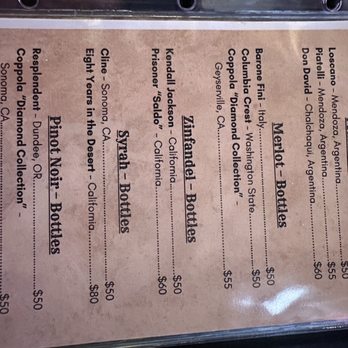 Loscano - Mendoza, Argentina $50
Piatelli - Mendoza, Argentina $55
Don David - Chalchaqui, Argentina $60
Merlot - Bottles
Barone Fini - Italy $50
Columbia Crest - Washington State $50
Coppola "Diamond Collection" -
Geyserville, CA $55
Zinfandel - Bottles
Kendall Jackson - California $50
Prisoner "Saldo" - California $60
Syrah - Bottles
Cline - Sonoma, CA $50
Eight Years in the Desert - California $80
Pinot Noir - Bottles
Resplendent - Dundee, OR $50
Coppola "Diamond Collection" -
Sonoma, CA $50